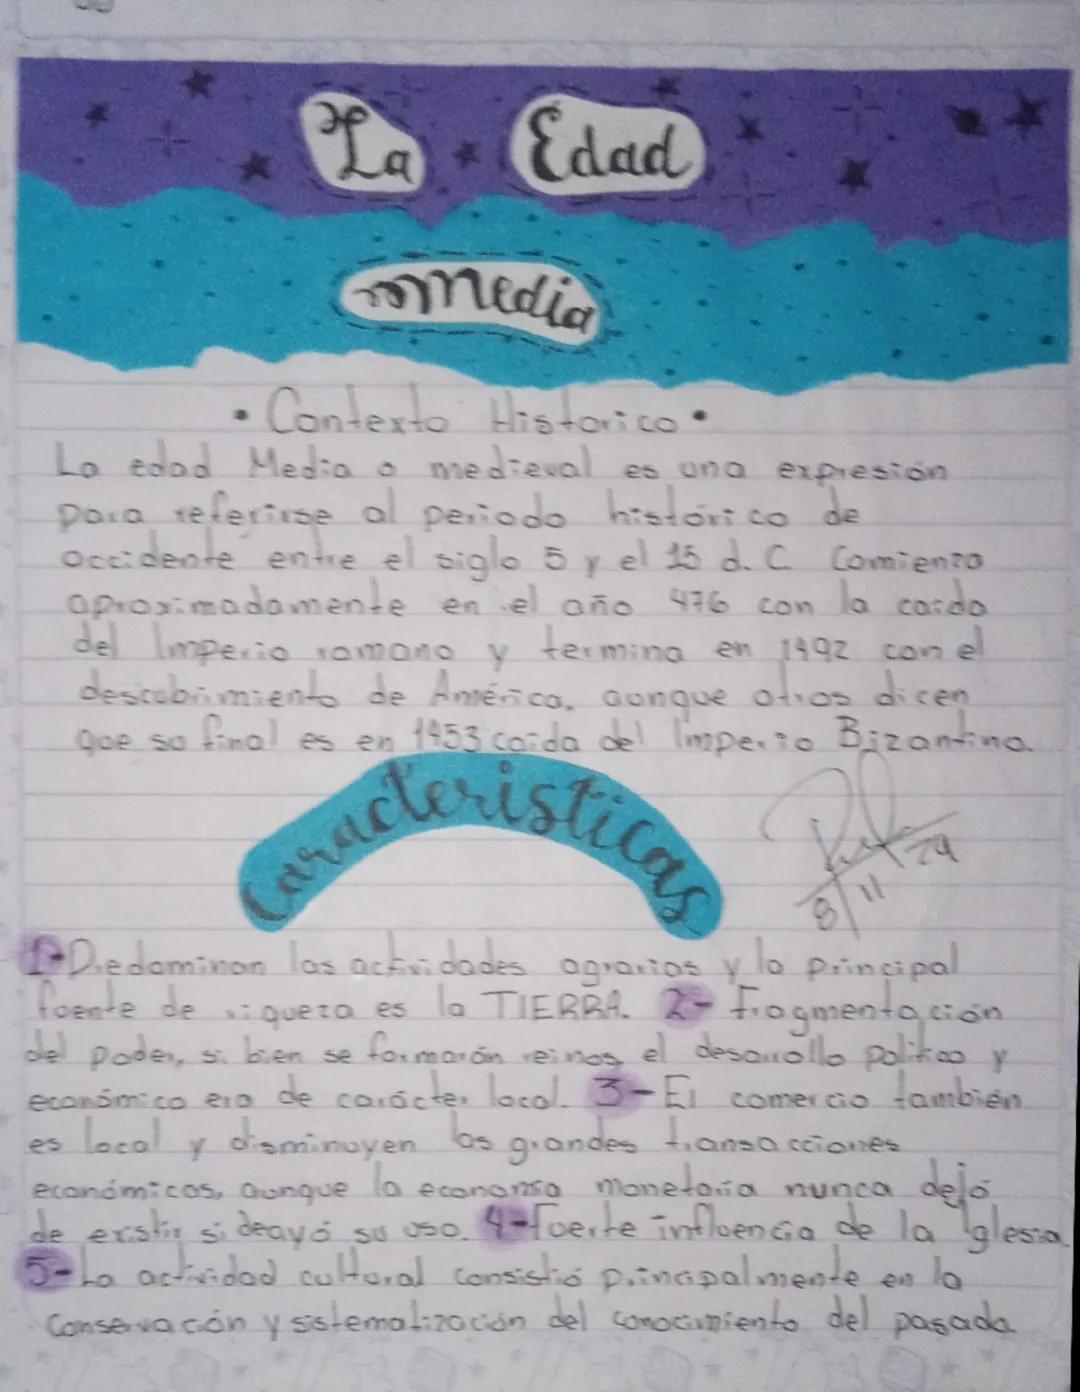 La Edad
Media
• Contexto Historico •
La edad Media o medieval es una expresión
para referirse al periodo histórico de
occidente entre el siglo 5 y el 15 d. C Comienza
aproximadamente en el año 476 con la caida
del Imperio romano y termina en 1492 con el
descubrimiento de América, aunque otros dicen
que su final es en 1453 caida del Imperio Bizantino.
Caracteristicas
8/11/24
1- Predominan las actividades agrarias y la principal
fuente de riqueza es la TIERRA. 2- fragmentación
del poder, si bien se formarón reinos el desarrollo politico y
económico era de carácter local. 3- El comercio también
es local y disminuyen las grandes transacciones
económicas, aunque la economia monetaria nunca dejó
de existir si decayó su uso. 4- fuerte influencia de la Iglesia
5- La actividad cultural consistió principalmente en la
conservación y sistematización del conocimiento del pasado.